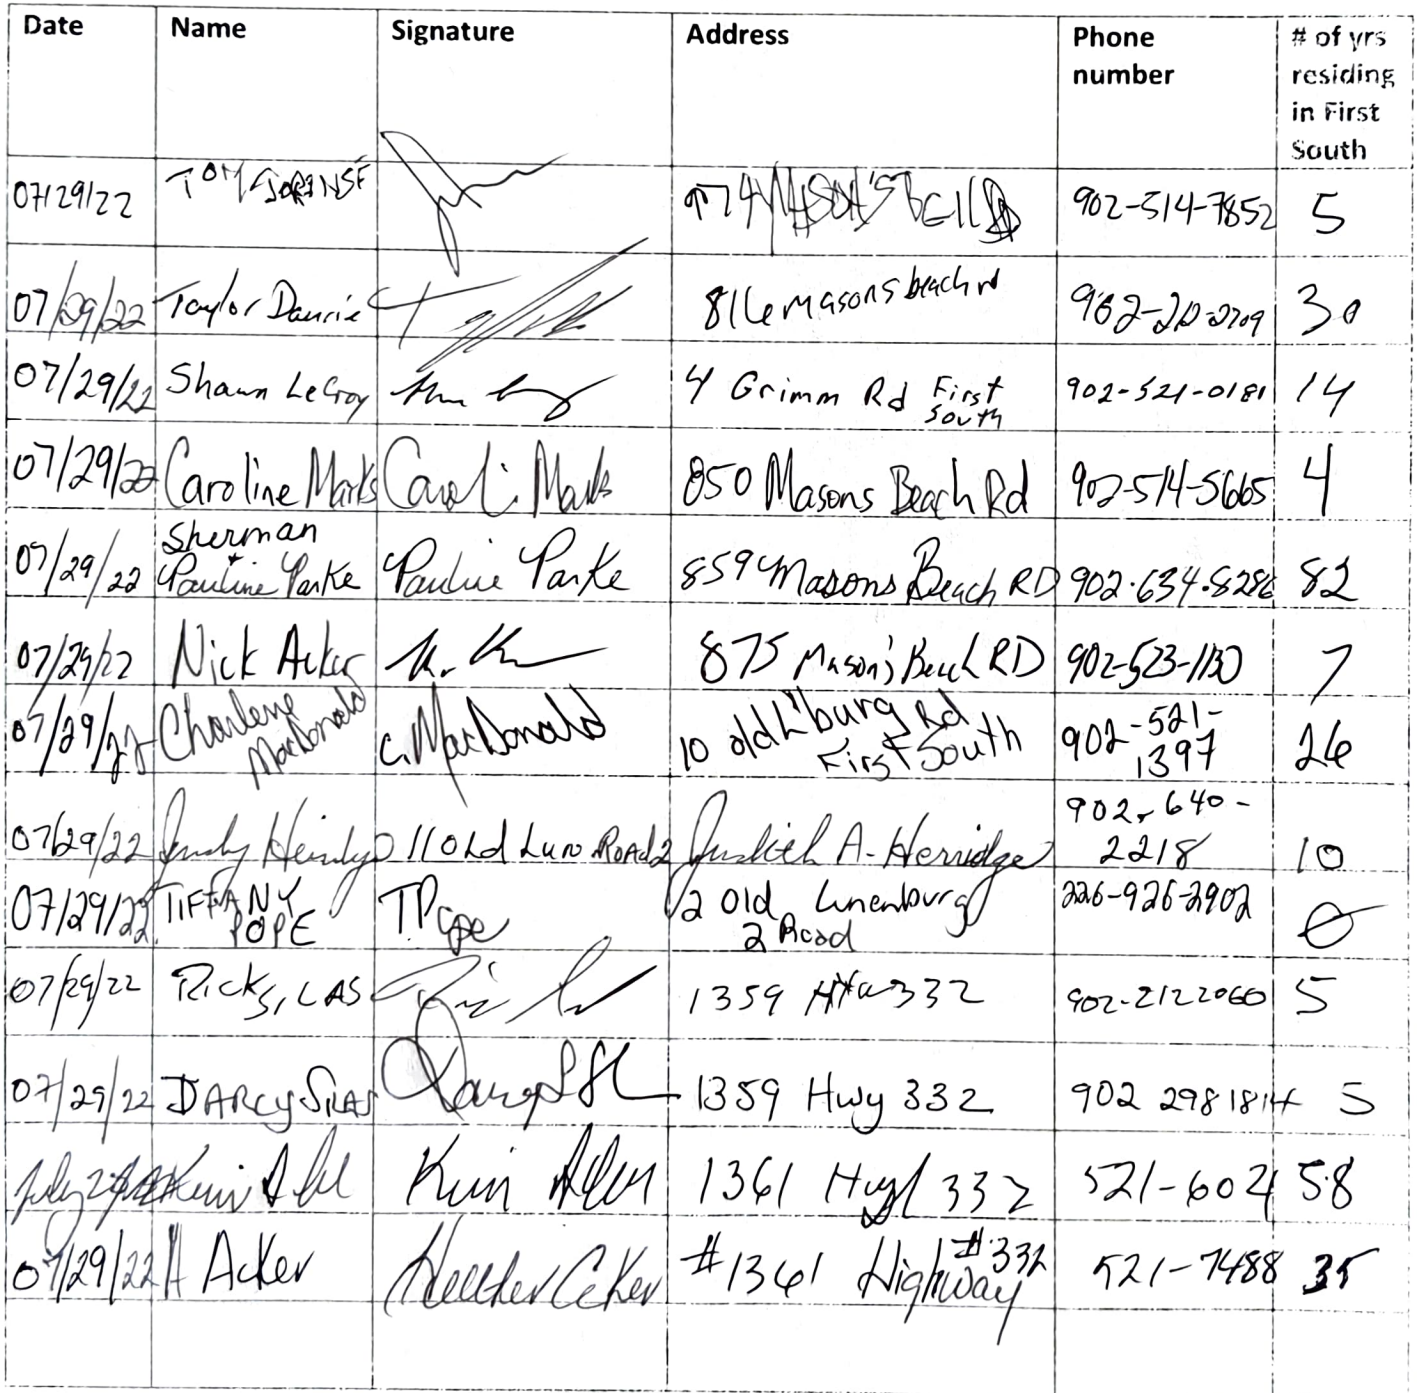 Date Name Signature Address Phone number # of yrs residing in First South
07/29/22 TOM 902-514-7852 5
07/29/22 Taylor Daurie 816 masons beach rd 30
07/29/22 Shawn LeCroy 4 Grimm Rd First South 902-521-0181 14
07/29/22 Caroline Marks Caroli Marks 850 Masons Beach Rd 902-514-5665 4
07/29/22 Sherman + Pauline Parke Pauline Parke 859 Masons Beach RD 902.634.8286 82
07/29/22 Nick Acker 875 Mason's Beach RD 902-523-1130 7
07/29/22 Charlene MacDonald C. MacDonald 10 old L'burg Rd First South 902-521-1397 26
07/29/22 Judy 11 OLd Lun Road 2 Judieth A. Herridge 902-640-2218 10
07/29/22 TIFFANY POPE TPope 2 Old Lunenburg 2 Road 226-926-2902 0
07/29/22 Rick SILAS 1359 332 902-2122060 5
07/29/22 DARCY SILAS 1359 Hwy 332 902 298 1814 5
July Kim Kim 1361 Hwy 332 521-6024 58
07/29/22 H Acker Heather Acker #1361 Highway #332 521-7488 35